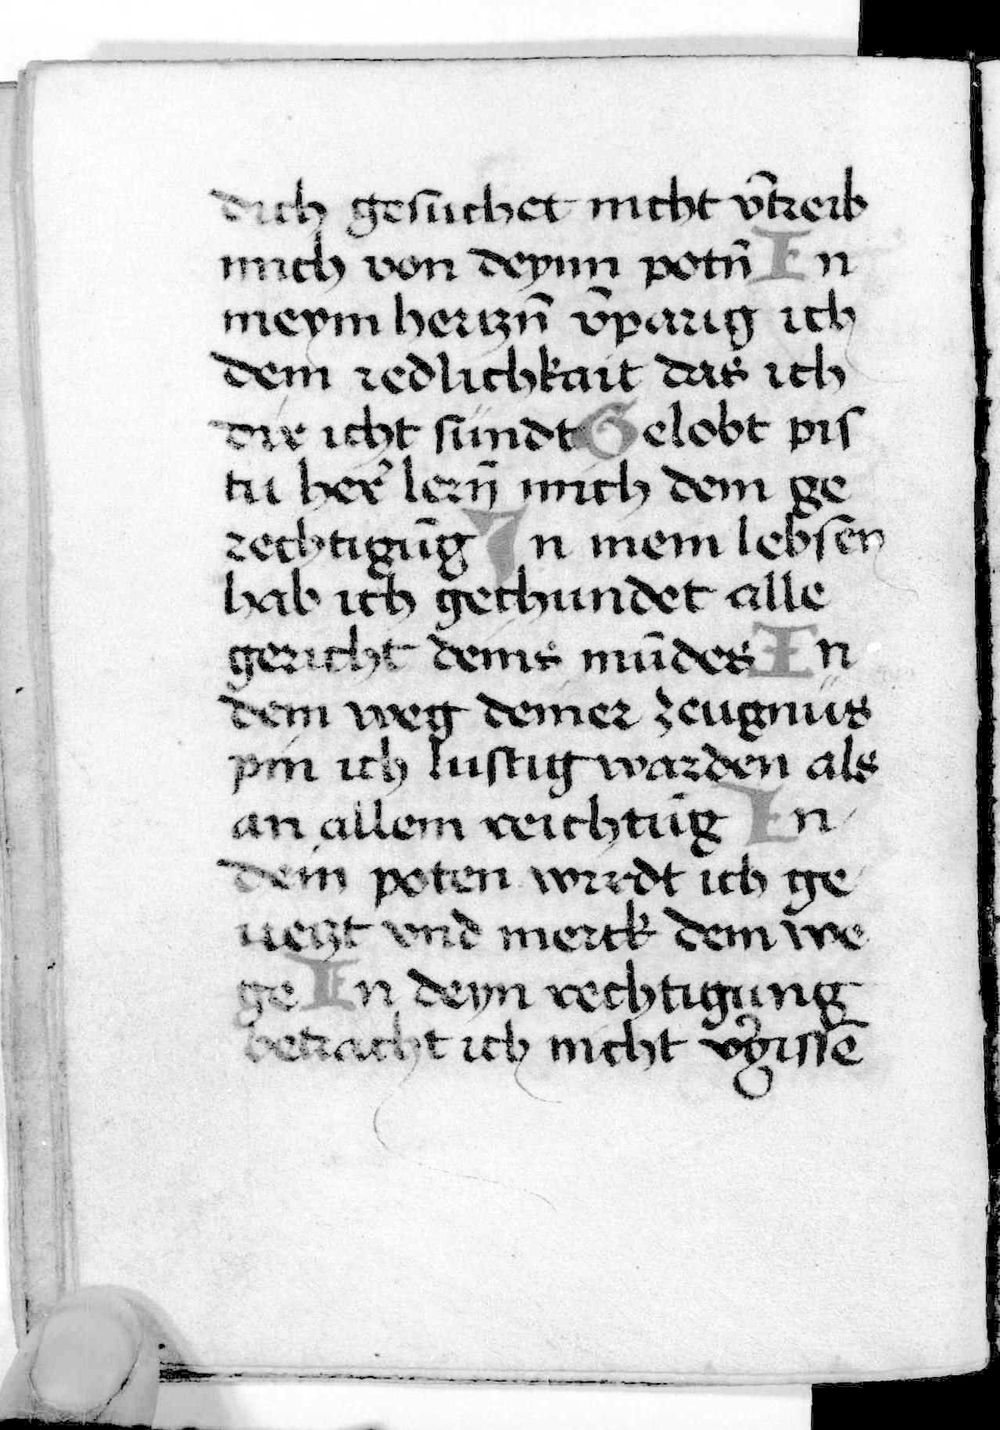 dich gesuchet nicht v̄treib
mich von deynn potn̄ In
meym hertzn̄ v̄parig ich
dein redlichkait das ich
dir icht sündt Gelobt pis
tu her᷑ lern̄ mich dein ge
rechtigūg In mein lebsen
hab ich gechundet alle
gericht deins mūdes In
dem weg deiner zeugnüs
pin ich lustig warden als
an allem reichtūg In
dein poten wirdt ich ge
uebt vnd merck dein we
ge In deyn rechtigung
betracht ich nicht v᷑gissē